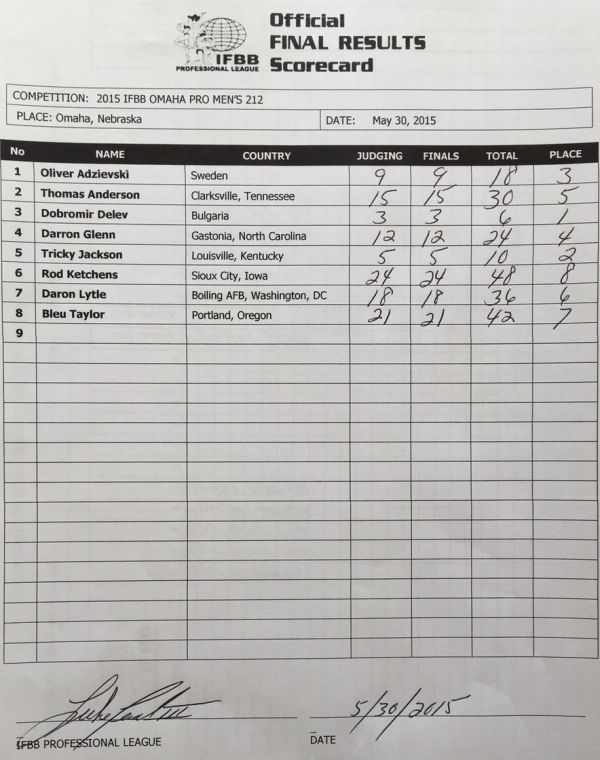 IFBB
PROFESSIONAL LEAGUE
Official
FINAL RESULTS
Scorecard
COMPETITION: 2015 IFBB OMAHA PRO MEN'S 212
PLACE: Omaha, Nebraska DATE: May 30, 2015
No NAME COUNTRY JUDGING FINALS TOTAL PLACE
1 Oliver Adzievski Sweden 9 9 18 3
2 Thomas Anderson Clarksville, Tennessee 15 15 30 5
3 Dobromir Delev Bulgaria 3 3 6 1
4 Darron Glenn Gastonia, North Carolina 12 12 24 4
5 Tricky Jackson Louisville, Kentucky 5 5 10 2
6 Rod Ketchens Sioux City, Iowa 24 24 48 8
7 Daron Lytle Boiling AFB, Washington, DC 18 18 36 6
8 Bleu Taylor Portland, Oregon 21 21 42 7
9
5/30/2015
IFBB PROFESSIONAL LEAGUE DATE